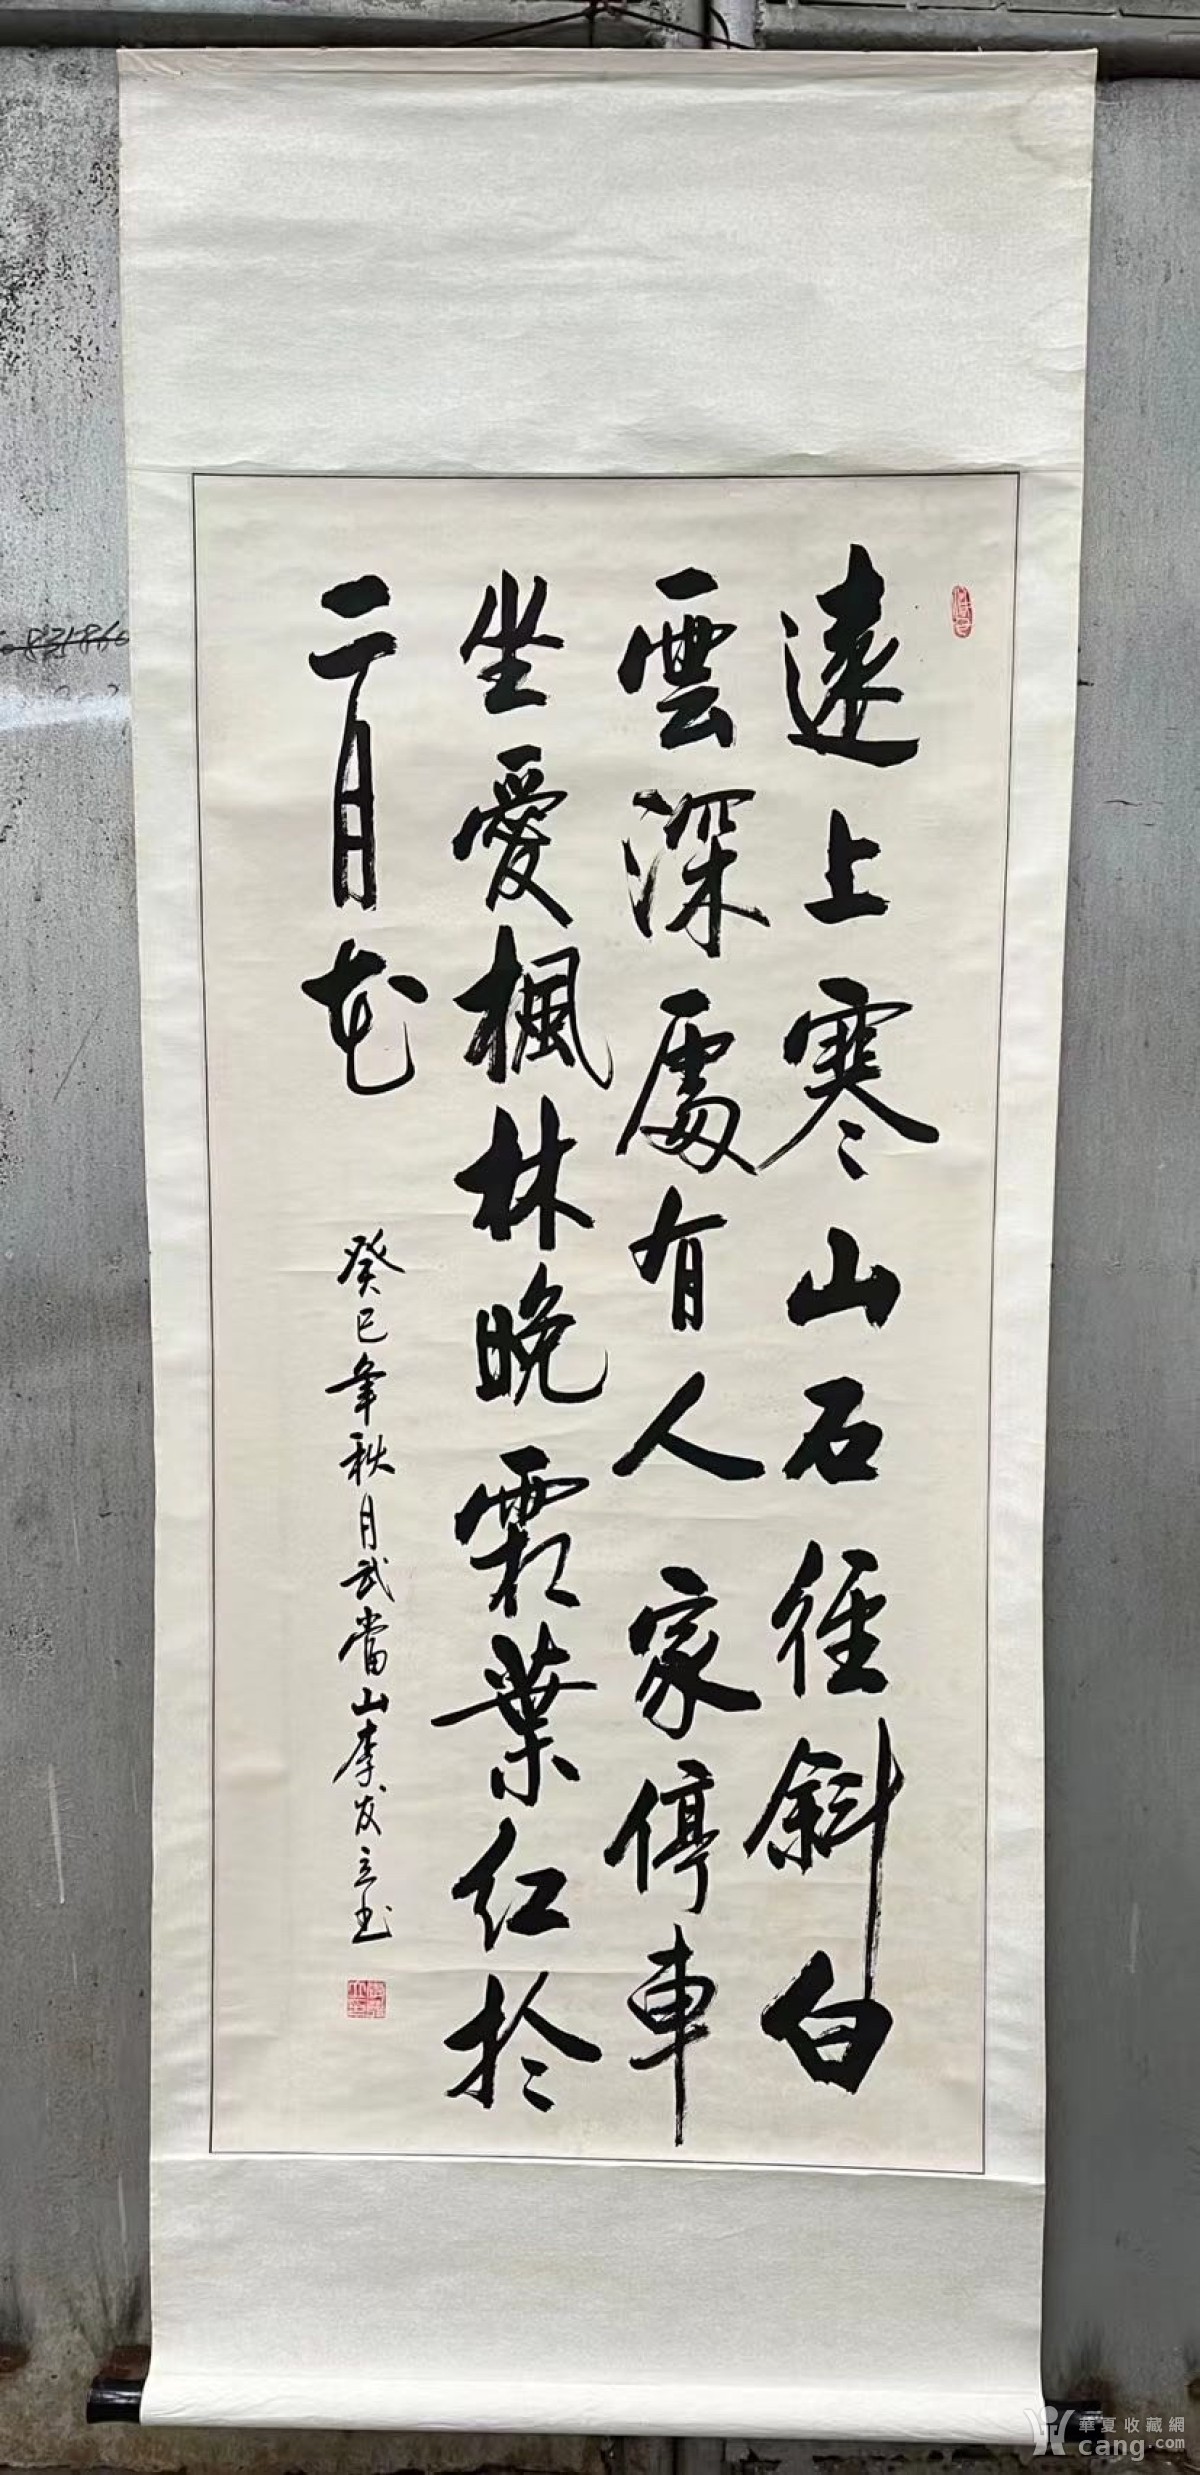 遠上寒山石径斜白
雲深處有人家停車
坐愛楓林晚霜葉红於
二月花
癸巳年秋月武當山李发立书
831860
華夏收藏網
cang.com